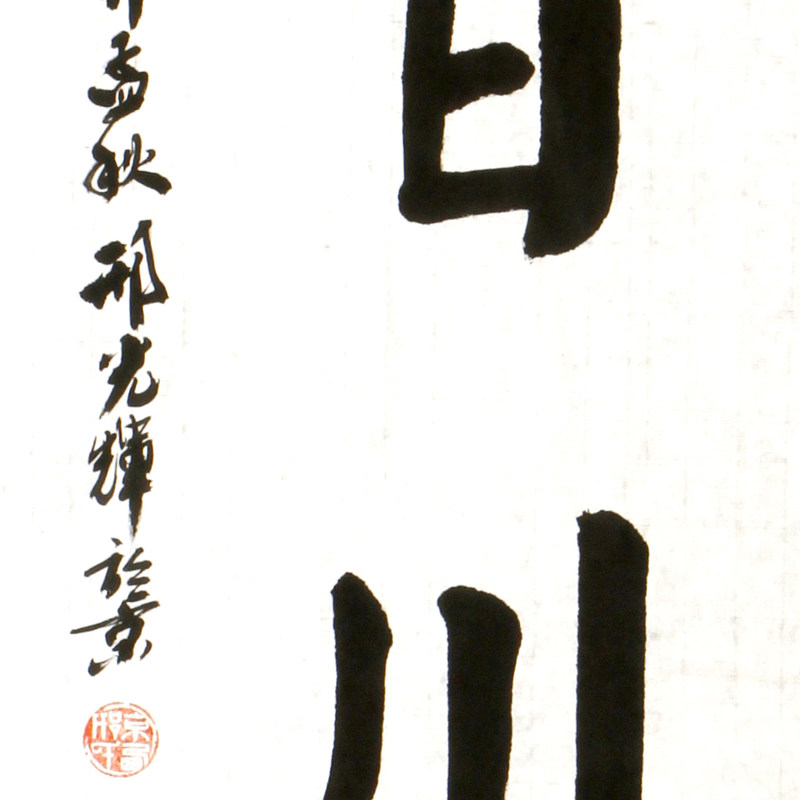 日川
孟秋邢光輝於京